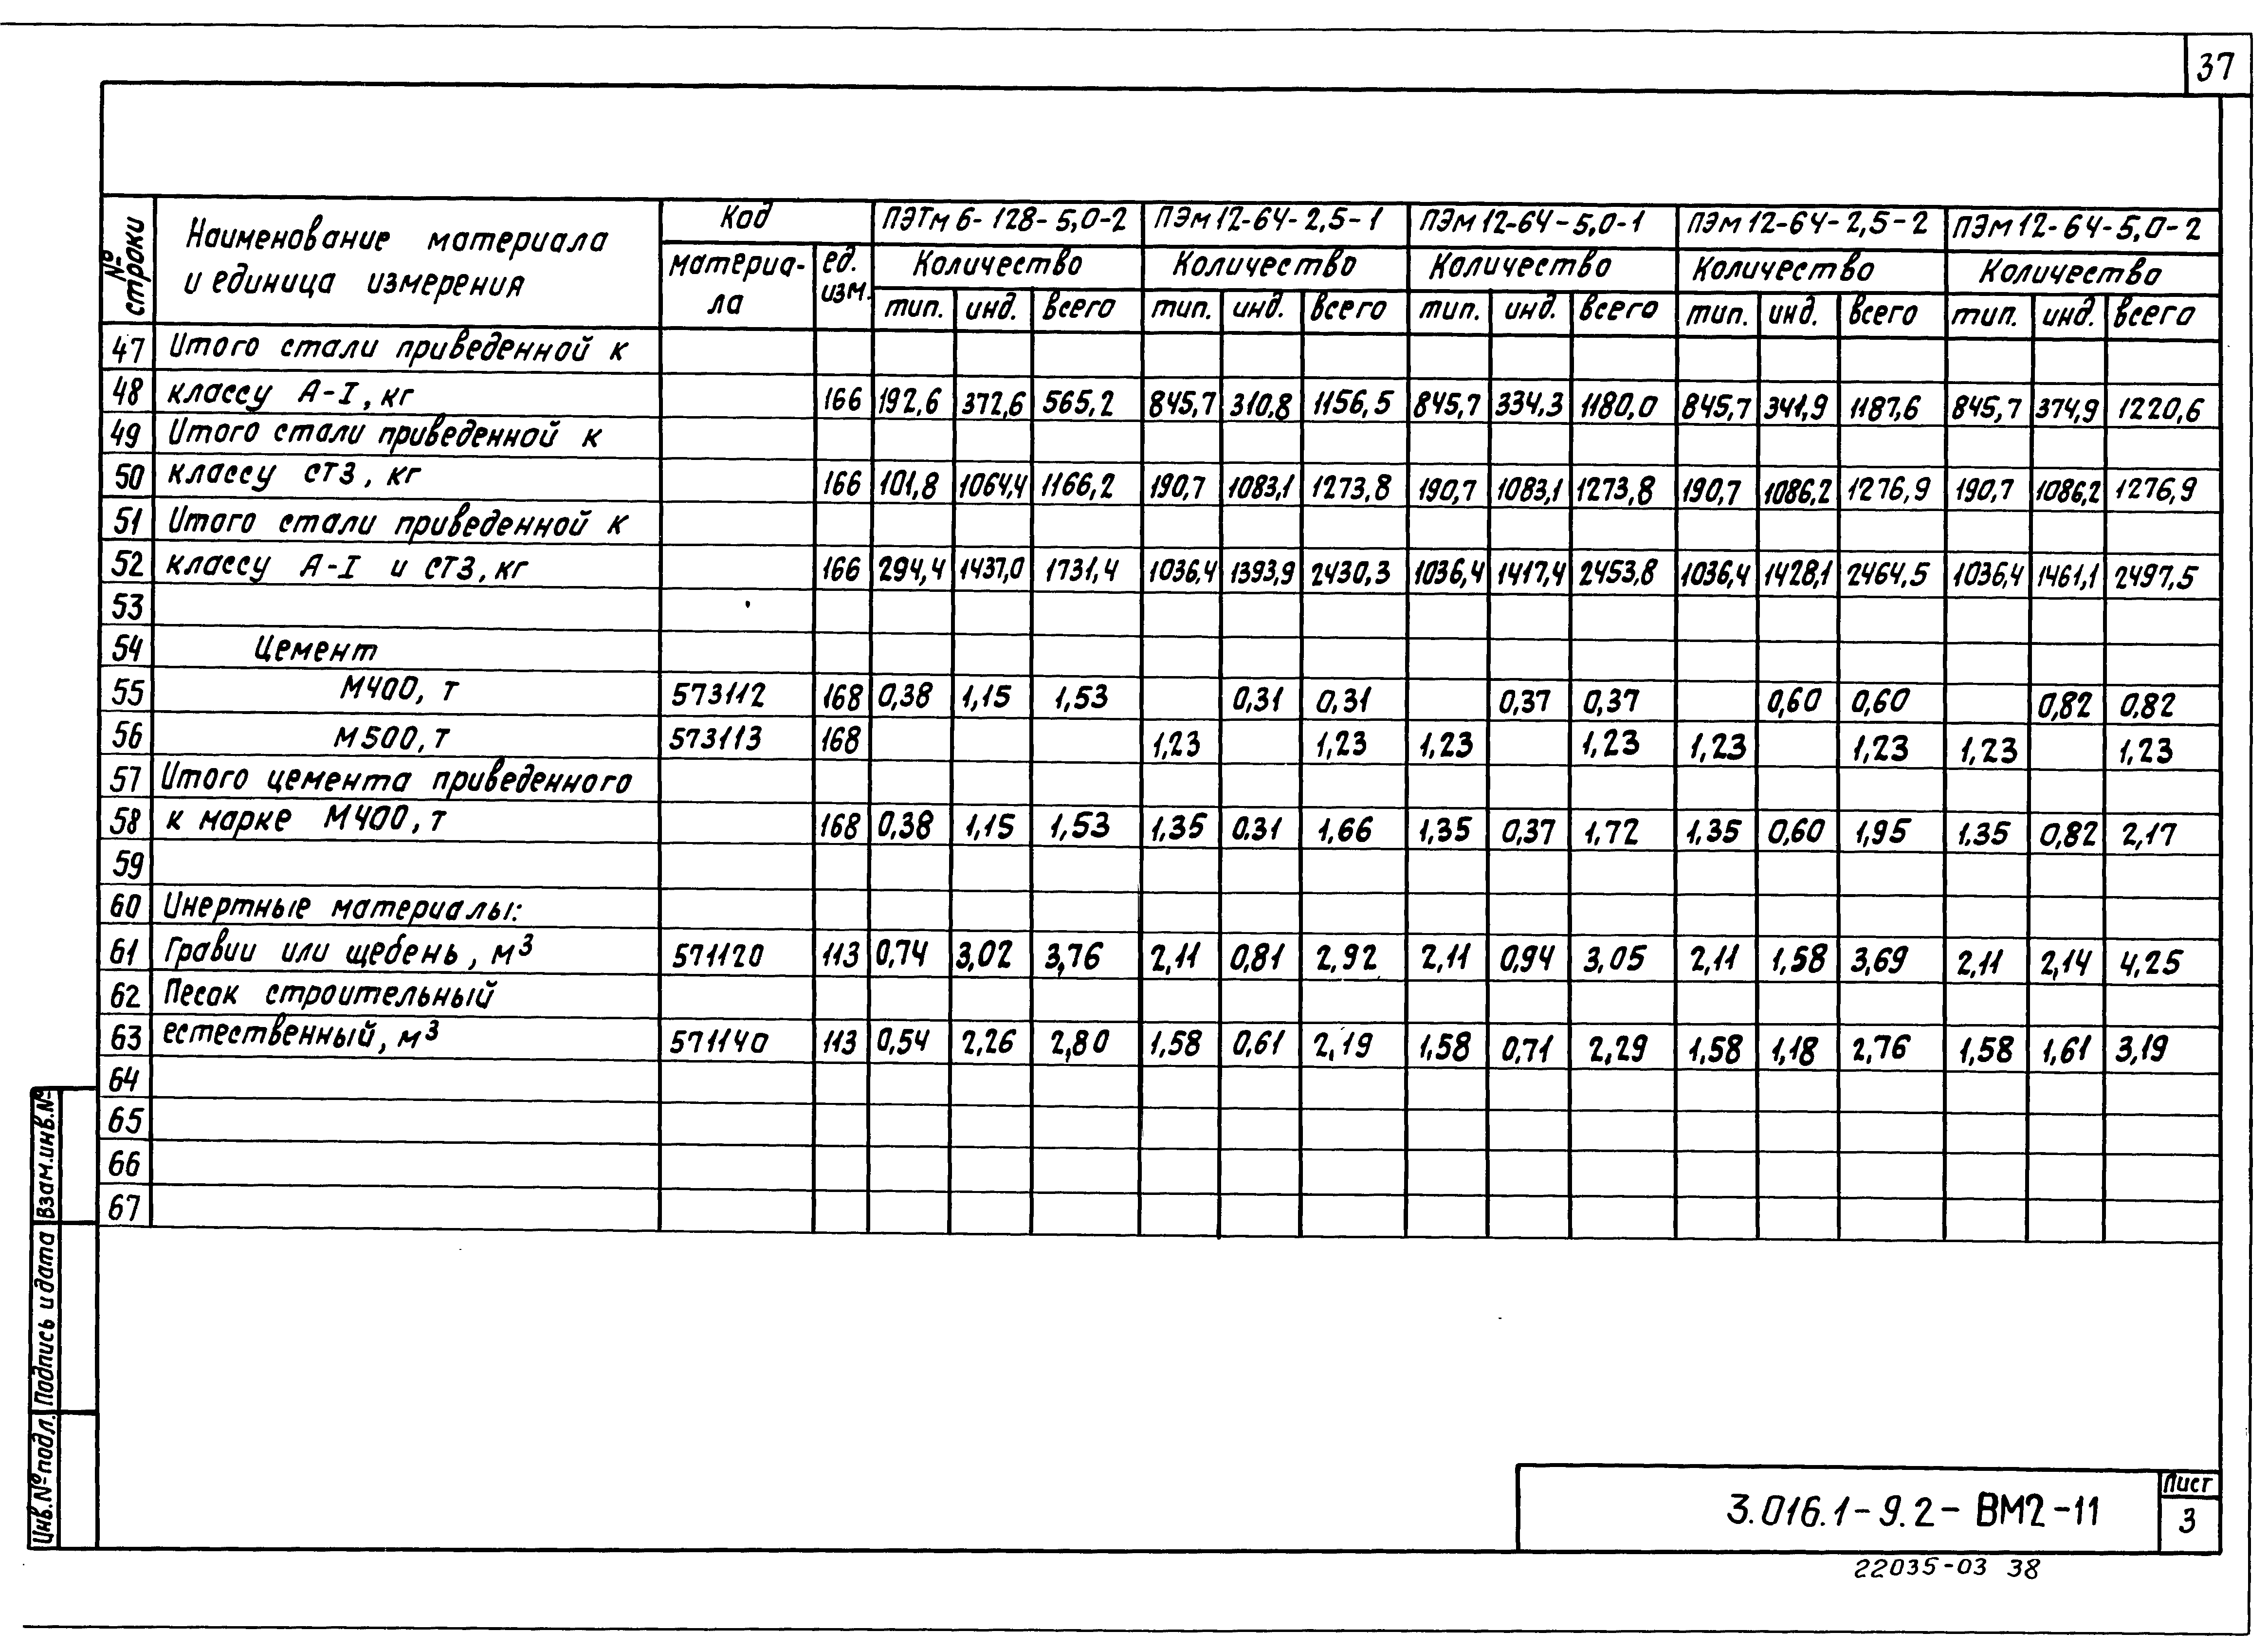 37
№ строки
Наименование материала и единица измерения
Код
ПЭТм 6-128-5,0-2 ПЭм 12-64-2,5-1 ПЭм 12-64-5,0-1 ПЭм 12-64-2,5-2 ПЭм 12-64-5,0-2
материа-ла
ед. изм.
Количество Количество Количество Количество Количество
тип. инд. всего тип. инд. всего тип. инд. всего тип. инд. всего тип. инд. всего
47 Итого стали приведенной к
48 классу А-I, кг 166 192,6 372,6 565,2 845,7 310,8 1156,5 845,7 334,3 1180,0 845,7 341,9 1187,6 845,7 374,9 1220,6
49 Итого стали приведенной к
50 классу СТ3, кг 166 101,8 1064,4 1166,2 190,7 1083,1 1273,8 190,7 1083,1 1273,8 190,7 1086,2 1276,9 190,7 1086,2 1276,9
51 Итого стали приведенной к
52 классу А-I и СТ3, кг 166 294,4 1437,0 1731,4 1036,4 1393,9 2430,3 1036,4 1417,4 2453,8 1036,4 1428,1 2464,5 1036,4 1461,1 2497,5
53
54 Цемент
55 М400, т 573112 168 0,38 1,15 1,53 0,31 0,31 0,37 0,37 0,60 0,60 0,82 0.82
56 М500, т 573113 168 1,23 1,23 1,23 1,23 1,23 1,23 1,23 1,23
57 Итого цемента приведенного
58 к марке М400, т 168 0,38 1,15 1,53 1,35 0.31 1,66 1,35 0,37 1,72 1,35 0,60 1,95 1.35 0,82 2,17
59
60 Инертные материалы:
61 Гравии или щебень, м³ 571120 113 0,74 3,02 3,76 2,11 0,81 2,92 2,11 0,94 3,05 2,11 1,58 3,69 2,11 2,14 4,25
62 Песок строительный
63 естественный, м³ 571140 113 0,54 2,26 2,80 1,58 0,61 2,19 1,58 0,71 2,29 1,58 1,18 2,76 1,58 1,61 3,19
64
65
66
67
Взам.инв.№
Подпись и дата
Инв.№ подл.
3.016.1-9.2-ВМ2-11
Лист
3
22035-03 38